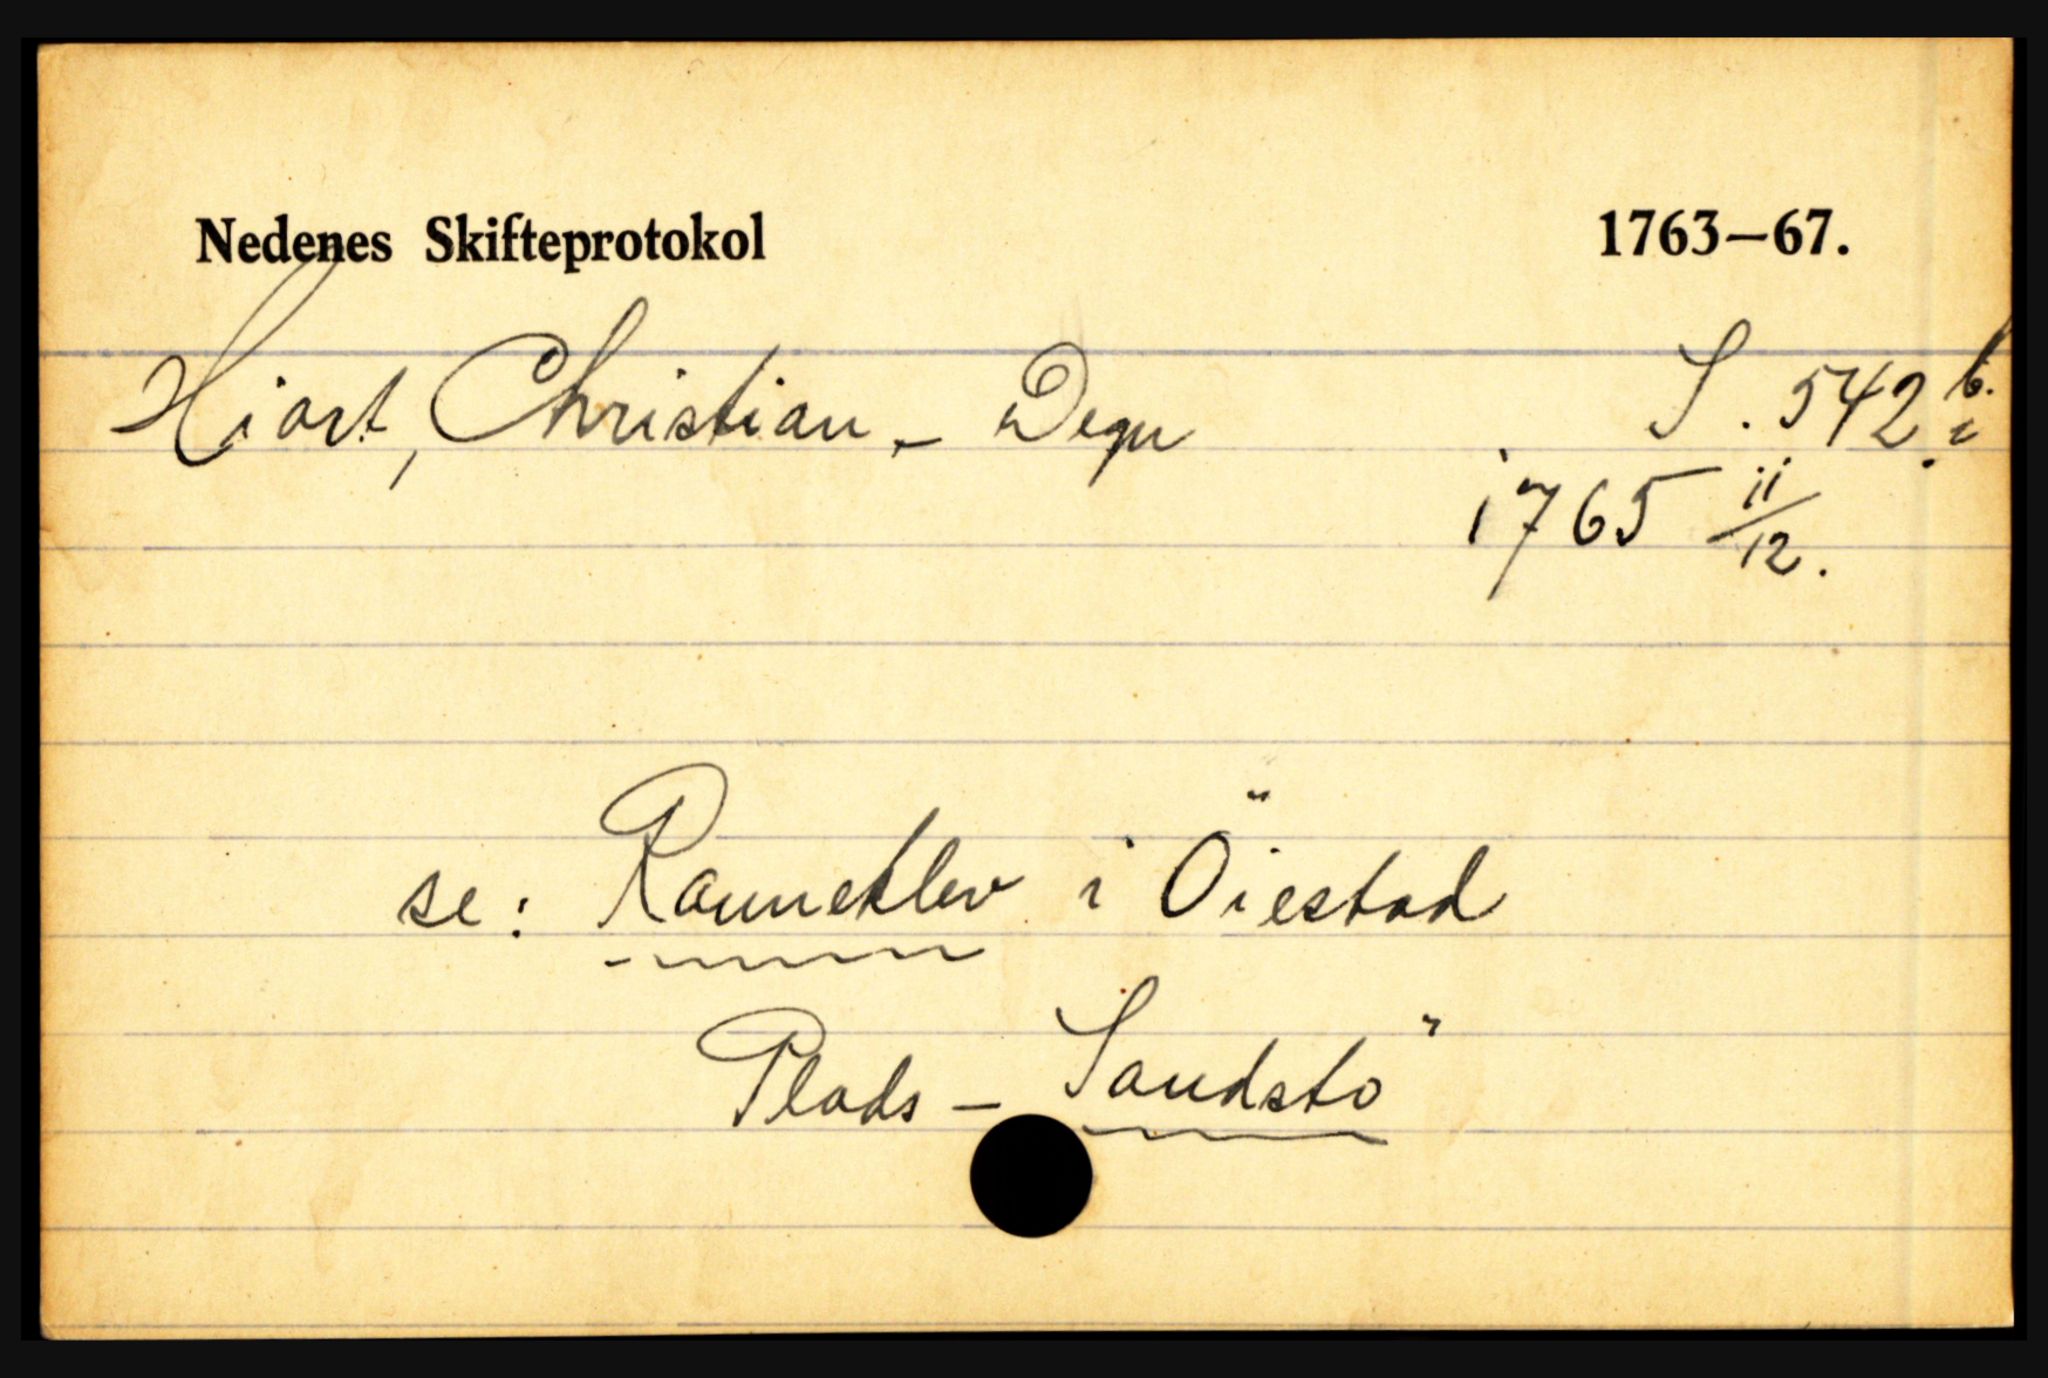 Nedenes Skifteprotokol 1763–67.
Hiort, Christian – Degn S. 542 b.
1765 11/12.
se: Ranneklev i Öiestad
Plads – Sandstö